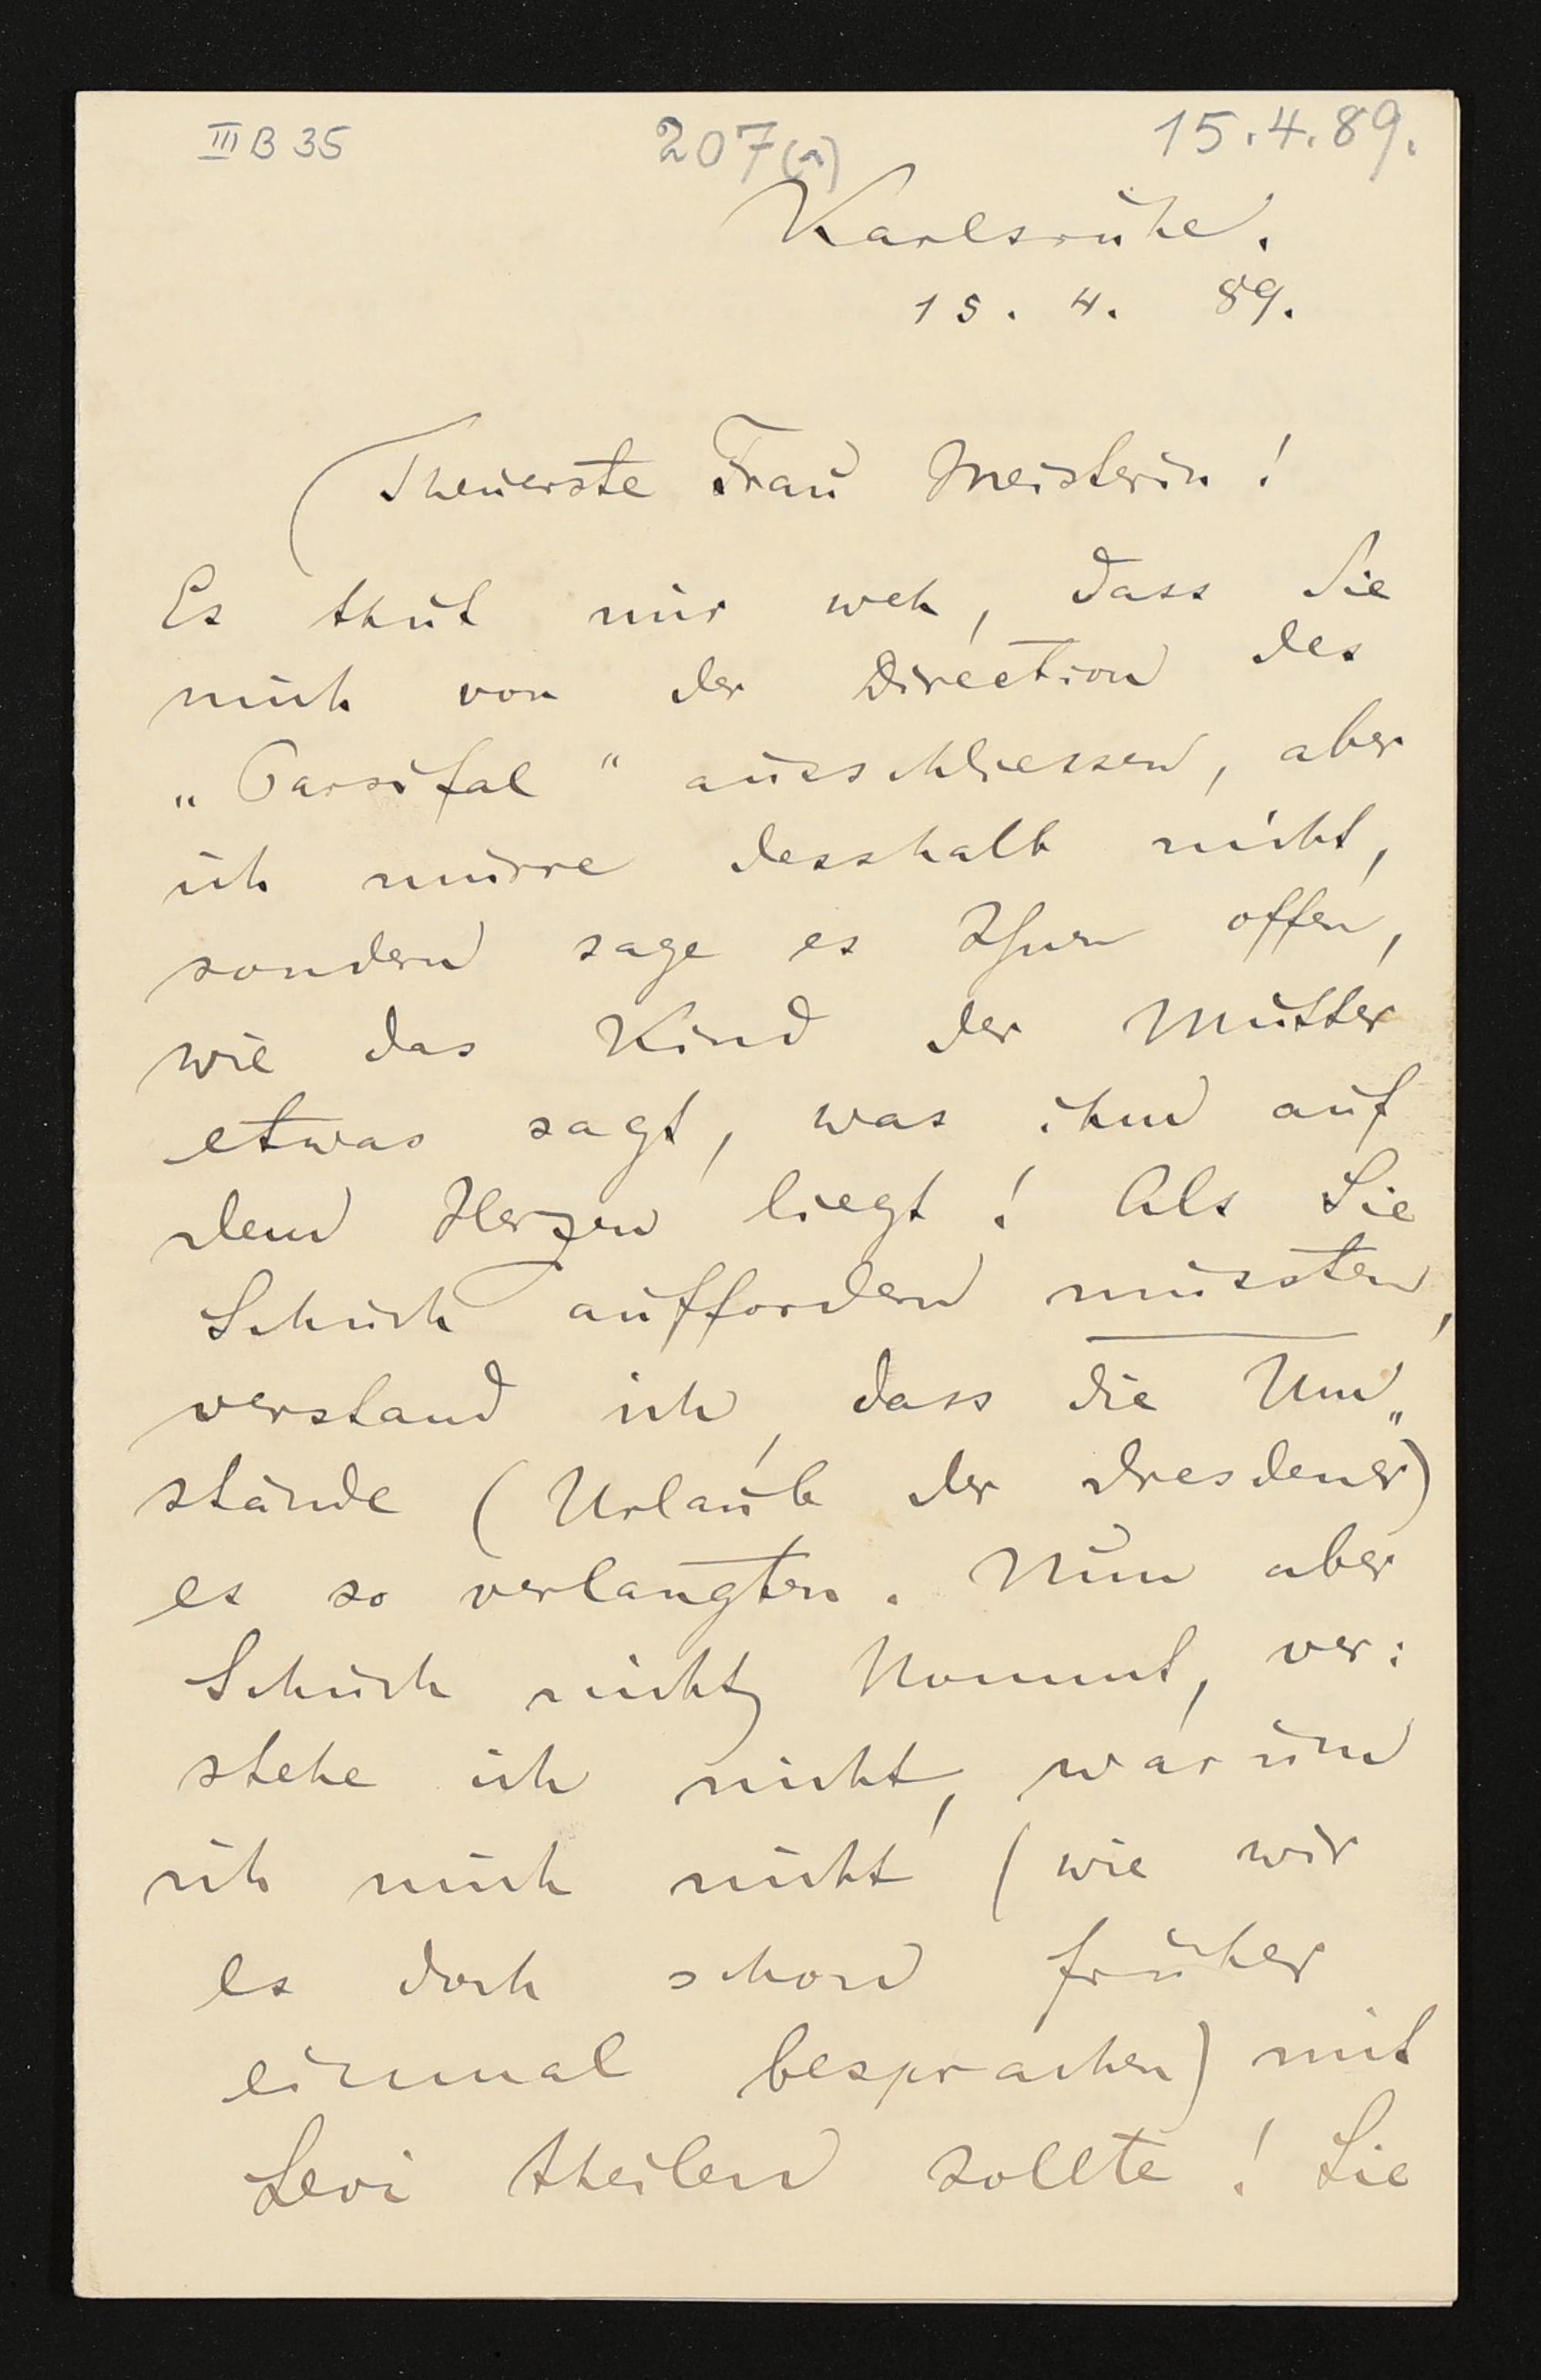 III B 35
207(1)
15.4.89.
Karlsruhe.
15. 4. 89.
Theuerste Frau Meisterin!
Es thut mir weh, dass Sie
mich von der Direction des
„Parsifal“ ausschliessen, aber
ich murre desshalb nicht,
sondern sage es Ihnen offen,
wie das Kind der Mutter
etwas sagt, was ihm auf
dem Herzen liegt! Als Sie
Schuch auffordern mussten,
verstand ich, dass die Um„
stände (Urlaub der Dresdener)
es so verlangten. Nun aber
Schuch nicht kommt, ver:
stehe ich nicht, warum
ich mich nicht (wie wir
es doch schon früher
einmal besprachen) mit
Levi theilen sollte! Sie